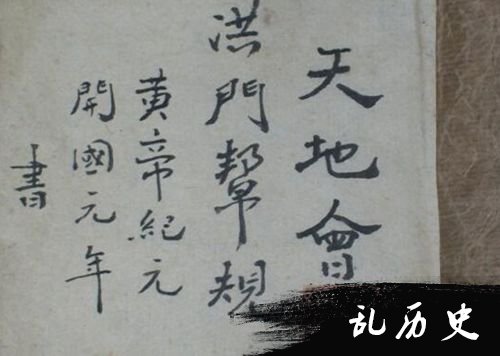 天地會
洪門幫規
黃帝紀元
開國元年
書
乱历史